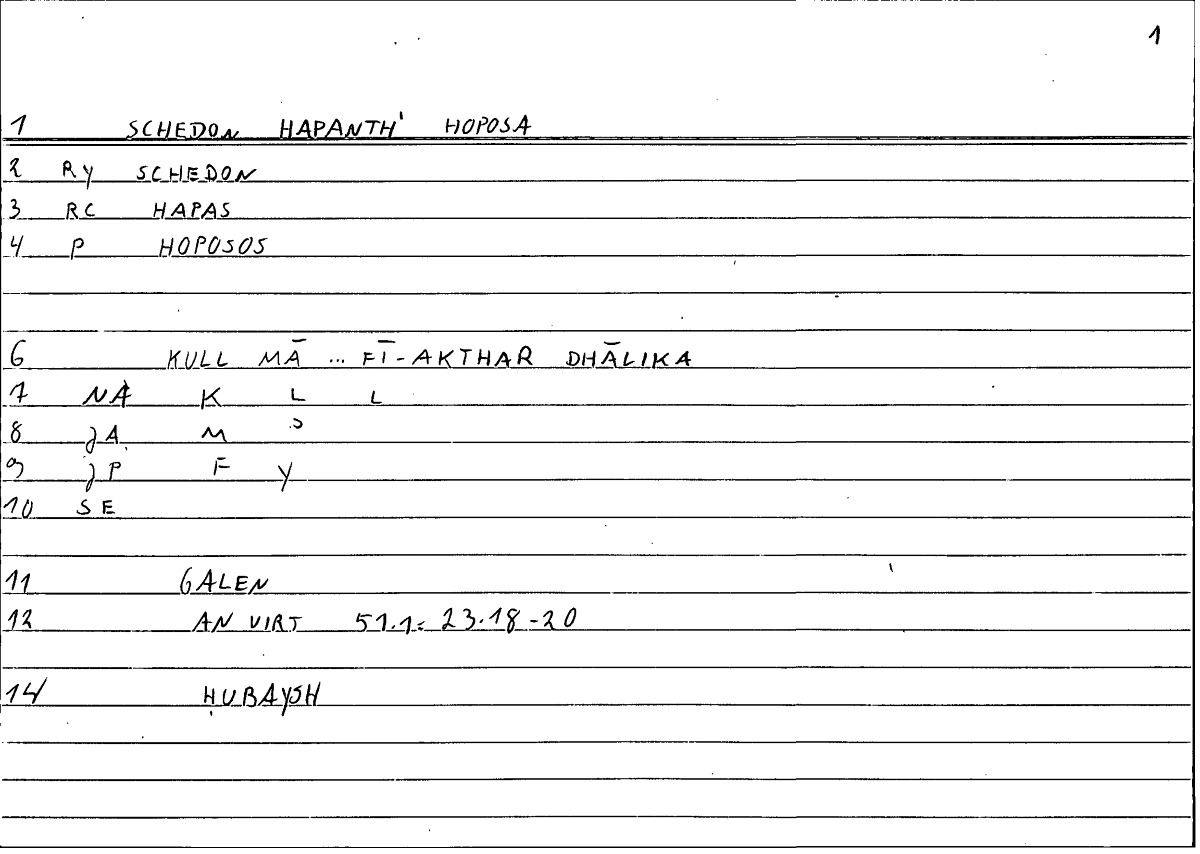 1
1 SCHEDON HAPANTH' HOPOSA
2 RY SCHEDON
3 RC HAPAS
4 P HOPOSOS
6 KULL MĀ ... FĪ-AKTHAR DHĀLIKA
7 NA K L L
8 JA M
9 JP F Y
10 SE
11 GALEN
12 AN VIRT 51.1= 23.18-20
14 ḤUBAYSH